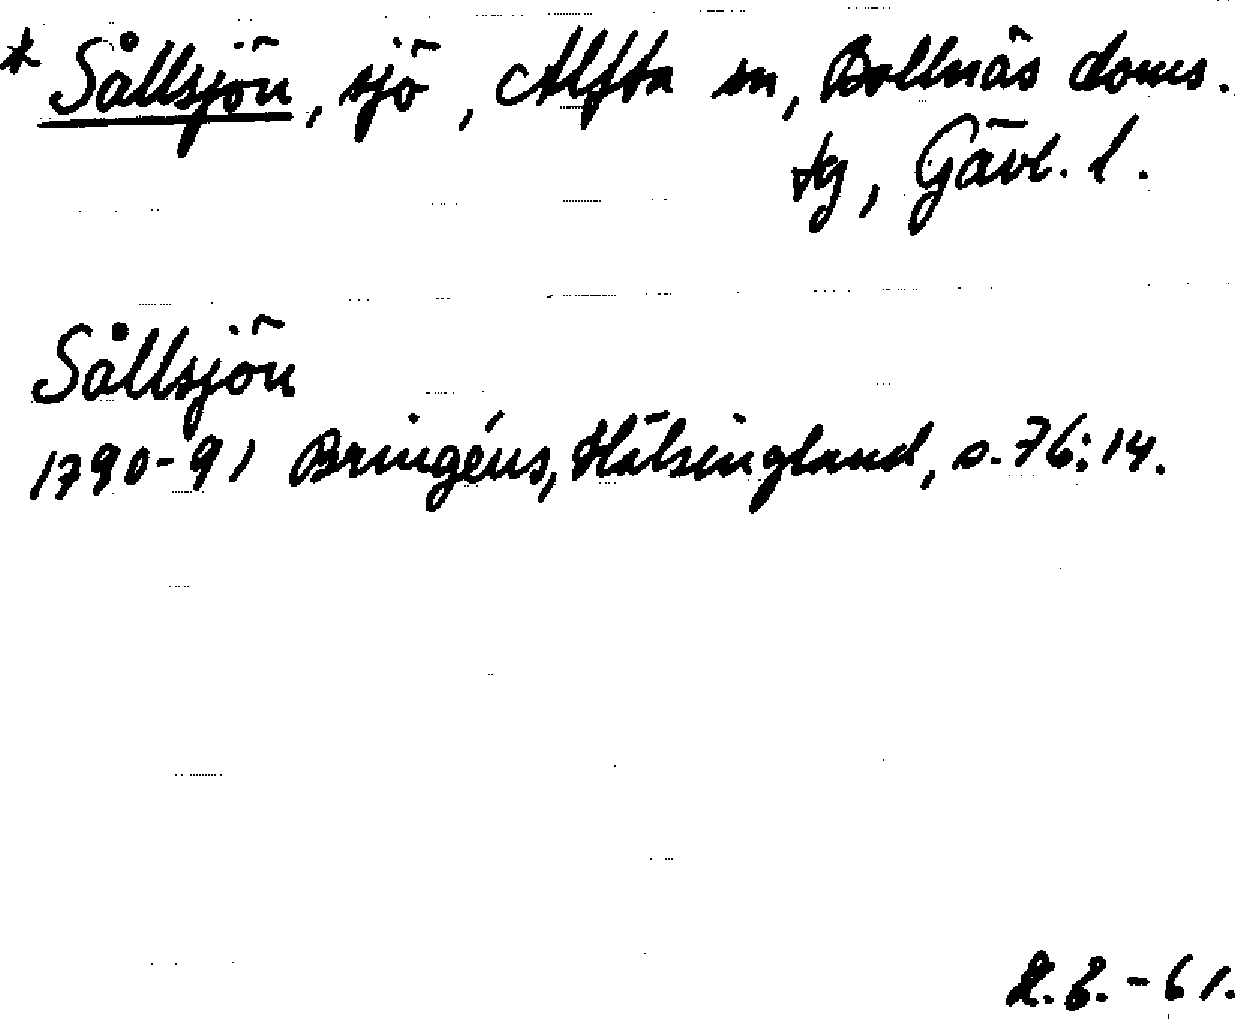 * Sållsjön, sjö, Alfta sn, Bollnäs doms.
tg, Gävl. l.
Sållsjön
1790-91 Bringéus, Hälsingland, s. 76:14.
-61.